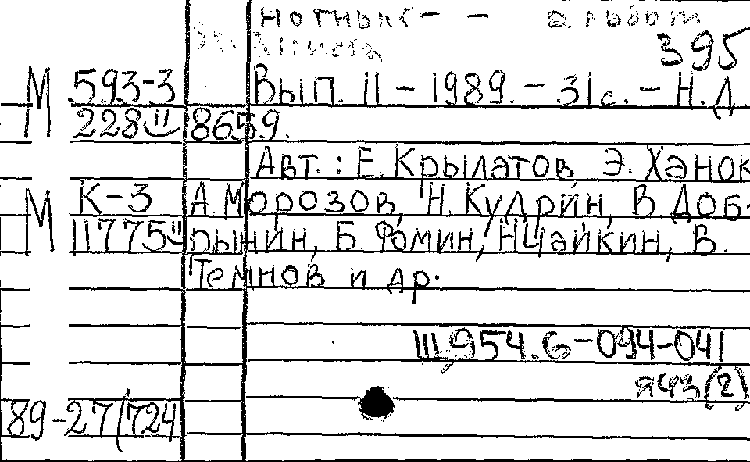 нотный - - альбом
395
М 593-3 Вып. 11 - 1989. - 31 с. - Н. Д
228 8659.
Авт.: Е. Крылатов, Э. Ханок
М К-3 А. Морозов, Н. Кудрин, В. Доб-
11775 рынин, Б. Фомин, Н Чайкин, В.
Темнов и др.
Ш 954.6-094-041
ЯЧ3(2)
89-27/724